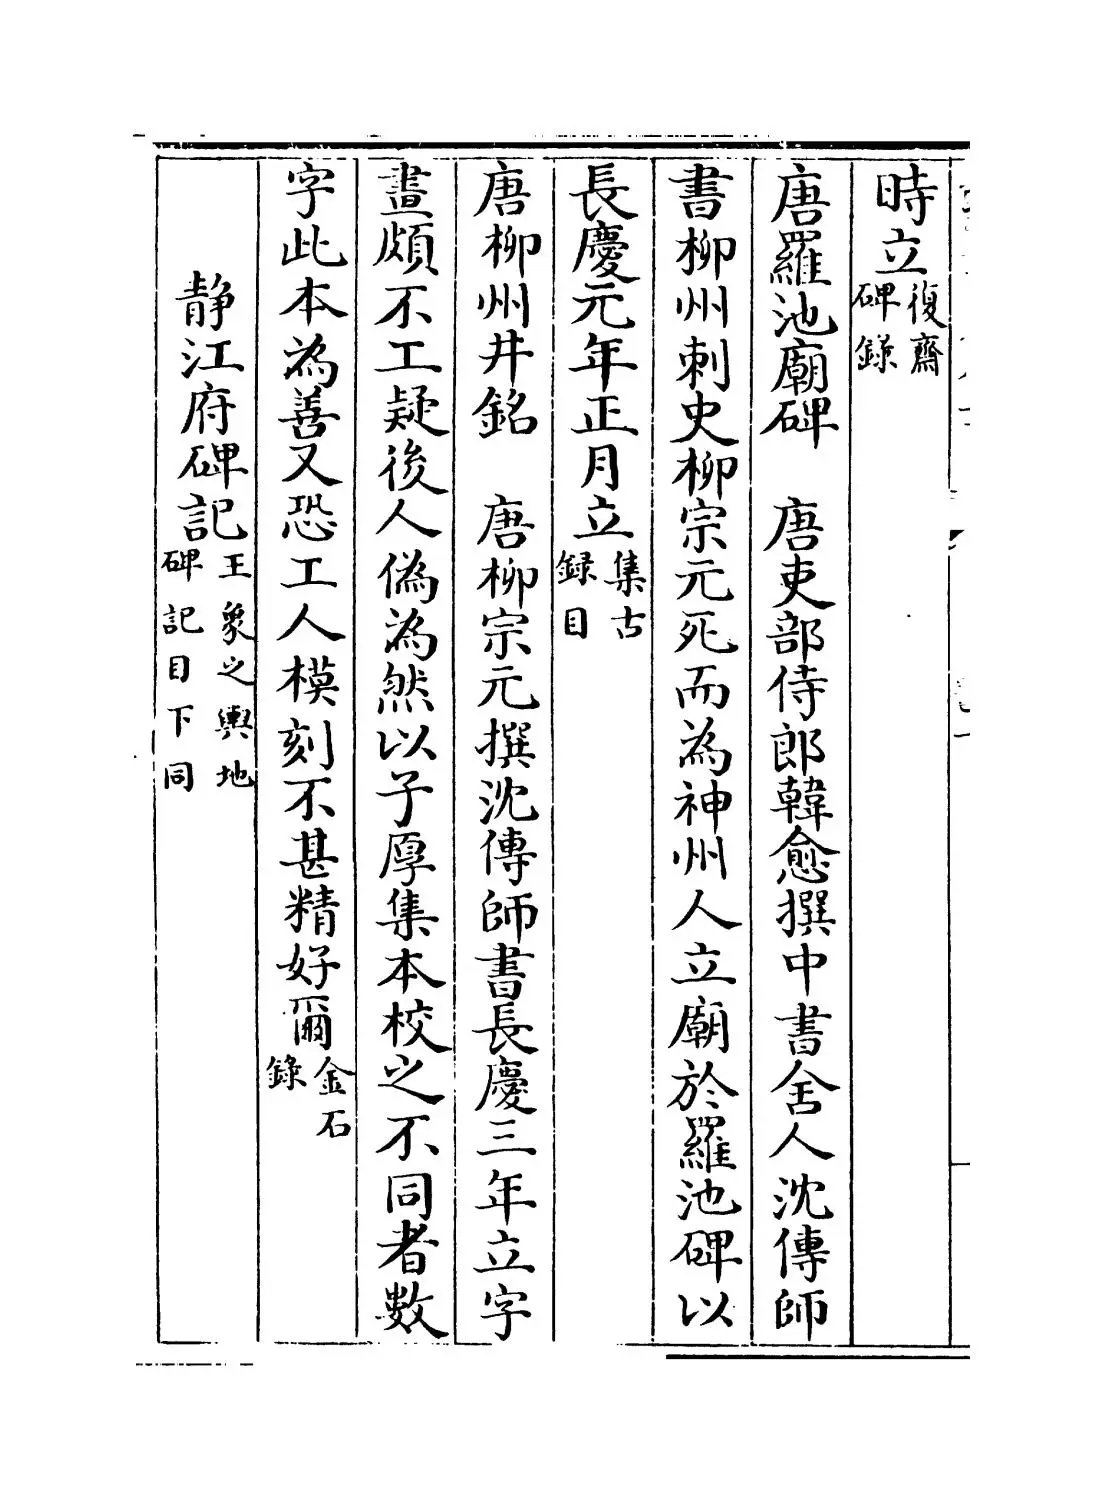 時立復齋碑錄
唐羅池廟碑　唐吏部侍郎韓愈撰中書舍人沈傳師
書柳州刺史柳宗元死而為神州人立廟於羅池碑以
長慶元年正月立集古錄目
唐柳州井銘　唐柳宗元撰沈傳師書長慶三年立字
畫頗不工疑後人偽為然以子厚集本校之不同者數
字此本為善又恐工人模刻不甚精好爾金石錄
靜江府碑記王象之輿地碑記目下同